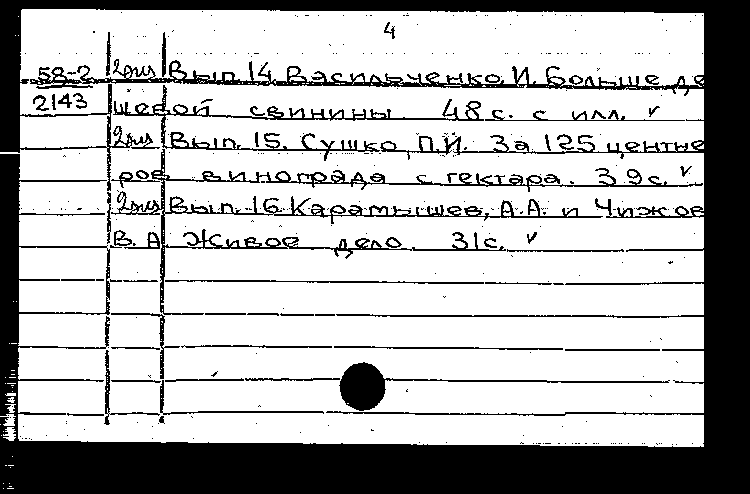 4
58-2 2экз Вып. 14. Васильченко, И. Больше де
2143 шевой свинины. 48 с. с илл. ✓
2экз Вып. 15. Сушко, П.И. За 125 центне
ров винограда с гектара. 39 с. ✓
2экз Вып. 16. Карамышев, А.А. и Чижов
В. А. Живое дело. 31 с. ✓